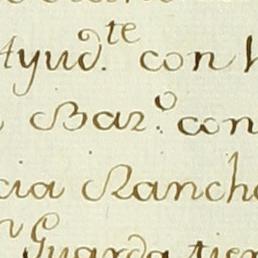 Ayud.te con
Bar.o con
cia Ranch
Guarda tien